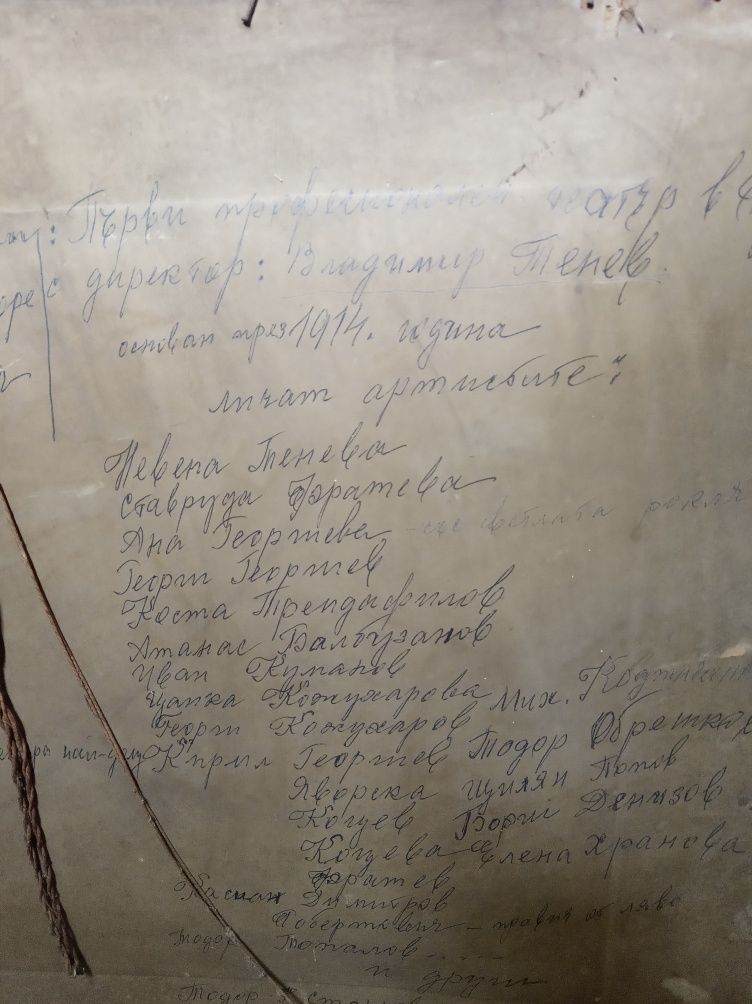 : Първи професионален театър в
с директор: Владимир Тенев
основан през 1914. година
личат артистите:
Невена Тенева
Ставруда Фратева
Ана Георгиева - със светлата рокля
Георги Георгиев
Коста Трендафилов
Атанас Балбузанов
Иван Куманов
Цанка Кожухарова Мих.
Георги Кожухаров Тодор
Кирил Георгиев
Яворска Цилян Попов
Коцев Борис Денизов
Коцева Елена Хранова
Фратев
Димитров
Робертович - правия от ляво
Тодор Топалов
и други
Тодор